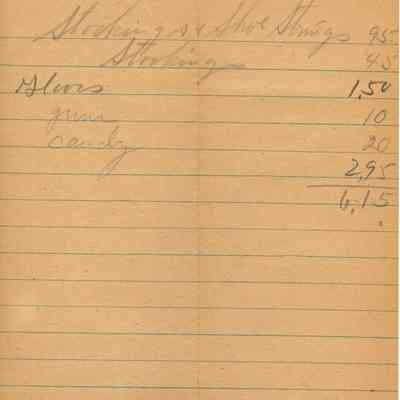 Stockings & Shoe Strings 95
Stockings 45
Gloves 1,50
gum 10
candy 20
2,95
6,15